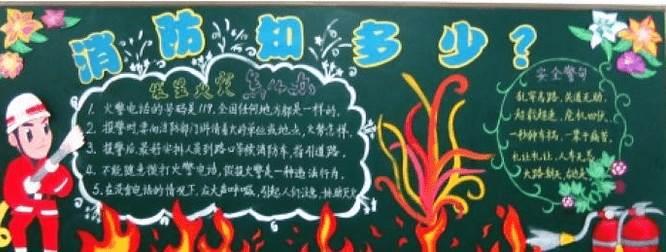 消防知多少？
发生火灾怎么办
1. 火警电话的号码是119,全国任何地方都是一样的。
2. 报警时,要向消防部门讲清着火的单位或地点,火势怎样。
3. 报警后,最好安排人员到路口等候消防车,指引道路。
4. 不能随意拨打火警电话,假报火警是一种违法行为。
5. 在没有电话的情况下,应大声呼喊,引起人们注意,
安全警句
乱穿高路,关道无助,
超载超速,危机四伏
一秒钟车祸,一辈子痛苦,
礼让礼让,人车无恙
大路朝天,